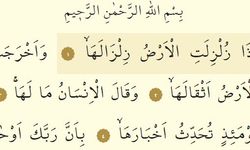 بِسْمِ اللّٰهِ الرَّحْمٰنِ الرَّح۪يمِ
ذَا زُلْزِلَتِ الْاَرْضُ زِلْزَالَهَاۙ ﴿١﴾ وَاَخْرَجَتِ
لْاَرْضُ اَثْقَالَهَاۙ ﴿٢﴾ وَقَالَ الْاِنْسَانُ مَا لَهَاۚ ﴿٣﴾
وْمَئِذٍ تُحَدِّثُ اَخْبَارَهَاۙ ﴿٤﴾ بِاَنَّ رَبَّكَ اَوْحٰ